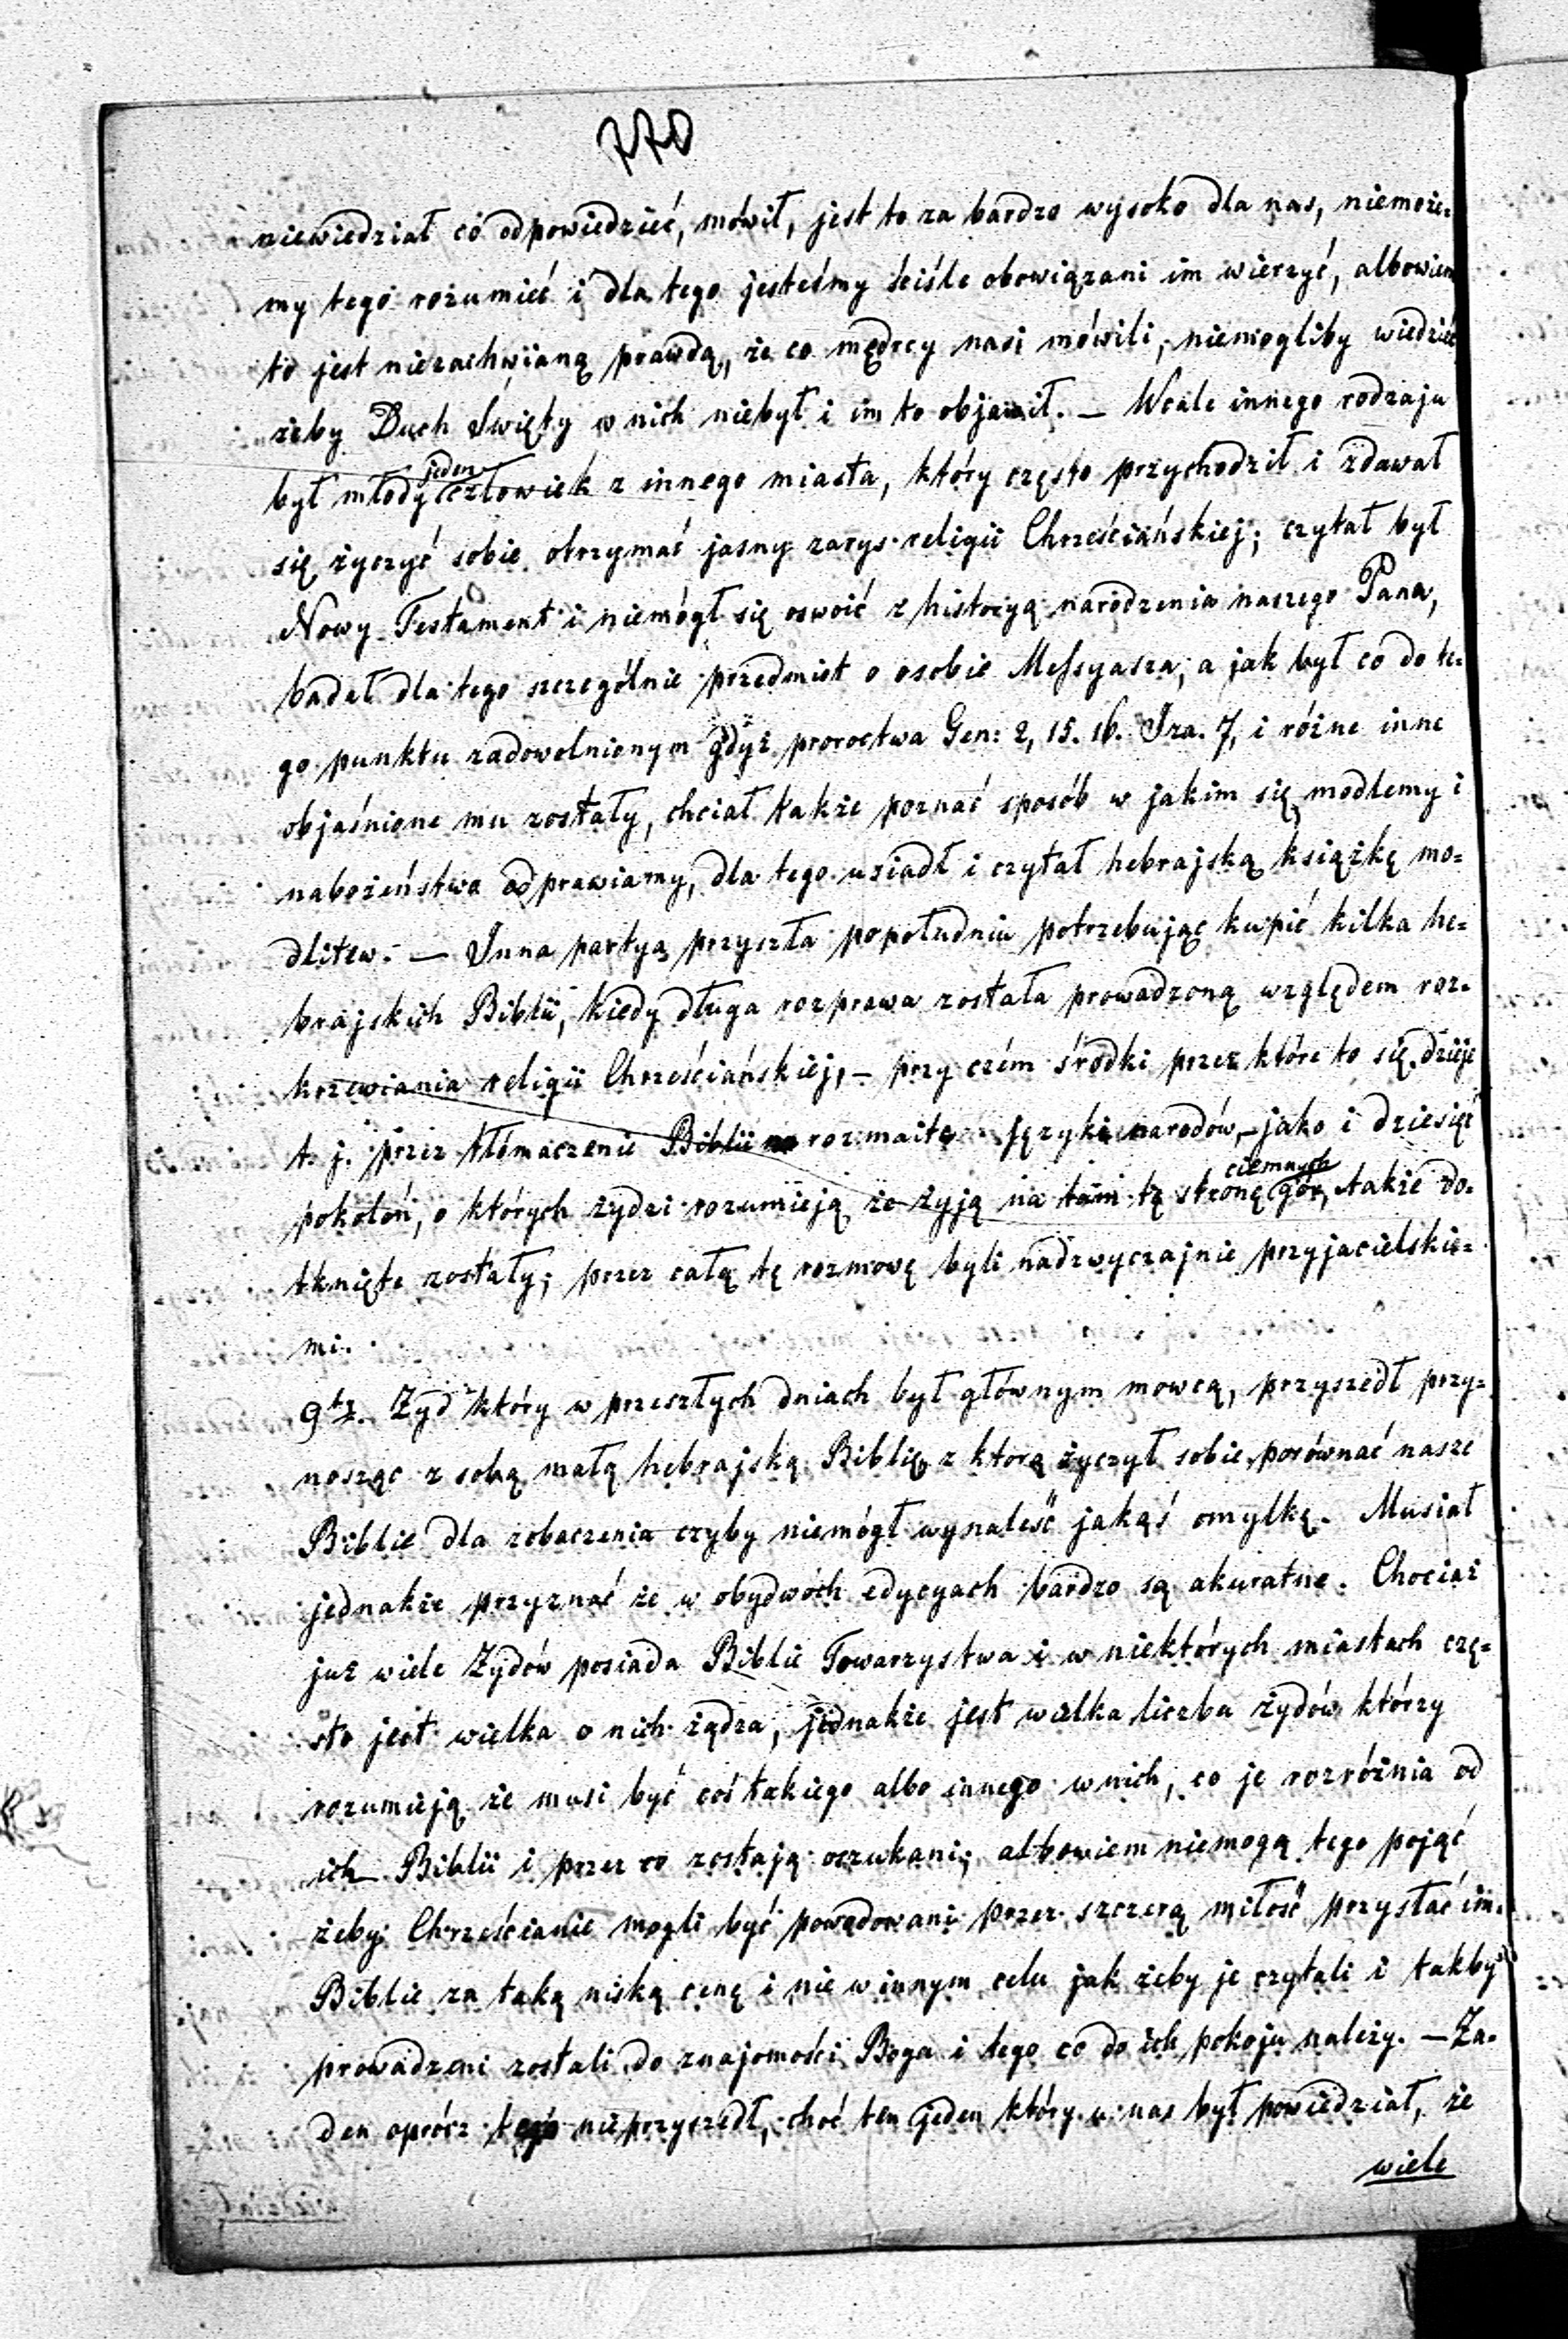 770
niewiedział co odpowiedzieć, mówił, jest to za bardzo wysoko dla nas, niemoże-
my tego rozumieć i dla tego jesteśmy ściśle obowiązani im wierzyć, albowiem
to jest niezachwianą prawdą, że co mędrcy nasi mówili, niemogliby wiedzieć
żeby Duch Święty w nich niebył i im to objawił. — Wcale innego rodzaju
był młody jeden człowiek z innego miasta, który często przychodził i zdawał
się życzyć sobie otrzymać jasny zarys religii Chrześciańskiej; czytał był
Nowy Testament i niemógł się oswoić z historyą narodzenia naszego Pana,
badał dla tego szczególnie przedmiot o osobie Messyasza; a jak był co do te-
go punktu zadowolnionym gdyż proroctwa Gen: 2, 15. 16. Iza. 7, i różne inne
objaśnione mu zostały, chciał także poznać sposób w jakim się modlemy i
nabożeństwo odprawiamy, dla tego usiadł i czytał hebrajską książkę mo-
dlitew. — Inna partya przyszła popołudniu potrzebując kupić kilka he-
brajskich Biblii, kiedy długa rozprawa została prowadzoną względem roz-
krzewiania religii Chrześciańskiej, — przy czém środki przez które to się dzieje
t. j. przez tłómaczenie Biblii na rozmaite języki narodów, — jako i dziesięć
pokoleń, o których żydzi rozumieją że żyją na tam tę stronę ciemnych gór, także do-
tknięte zostały; przez całą tę rozmowę byli nadzwyczajnie przyjacielskie-
mi.
9te. Żyd który w przeszłych dniach był głównym mowcą, przyszedł przy-
nosząc z sobą małą hebrajską Biblię z którą życzył sobie porównać nasze
Biblie dla zobaczenia czyby niemógł wynaleść jakąś omylkę. Musiał
jednakże przyznać że w obydwóch edycyach bardzo są akuratne. Chociaż
już wiele Żydów posiada Biblie Towarzystwa i w niektórych miastach czę-
sto jest wielka o nich żądza, jednakże jest wielka liczba żydów którzy
rozumieją że musi być coś takiego albo innego w nich, co je rozróżnia od
ich Biblii i przez co zostają oszukani; albowiem niemogą tego pojąć
żeby Chrześcianie mogli być powodowani przez szczerą miłość przysłać im
Biblie za taką niską cenę i nie w innym celu jak żeby je czytali i takby
prowadzeni zostali do znajomości Boga i tego co do ich pokoju należy. — Ża-
den oprócz tego nieprzyszedł, choć ten jeden który u nas był powiedział, że
wiele